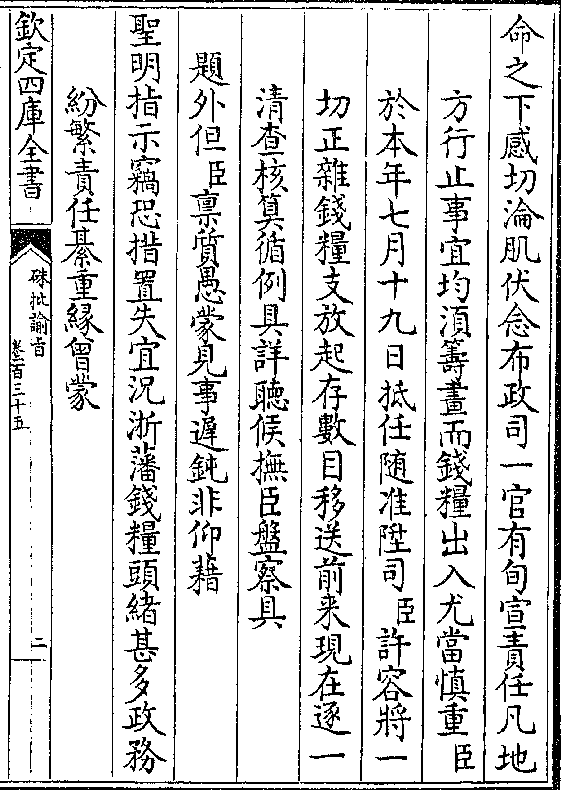 命之下感切淪肌伏念布政司一官有旬宣責任凡地
方行止事宜均須籌畫而錢糧出入尤當慎重臣
於本年七月十九日抵任随准陞司臣許容將一
切正雜錢糧支放起存數目移送前来現在逐一
清查核算循例具詳聽候撫臣盤察具
題外但臣禀質愚蒙見事遲鈍非仰藉
聖明指示竊恐措置失宜况浙藩錢糧頭緒甚多政務
紛繁責任綦重緣曾蒙
欽定四庫全書
硃批諭旨
卷二百三十五
二